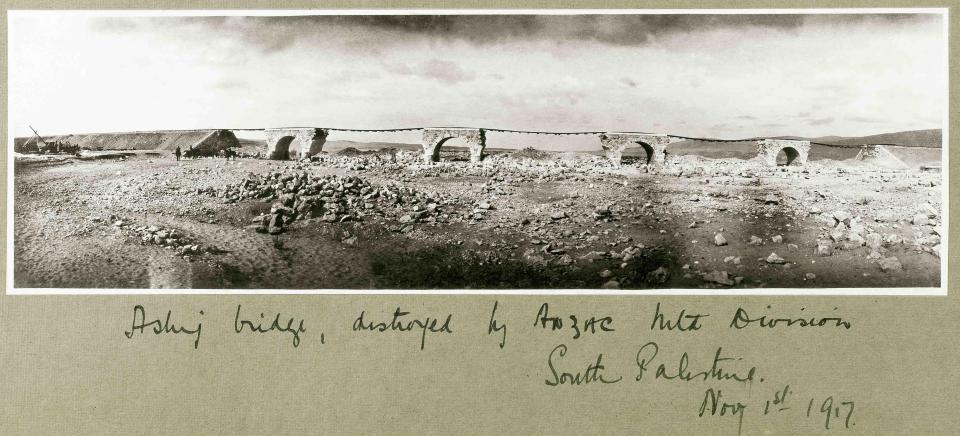 Asluj bridge, destroyed by ANZAC Mtd Division
South Palestine.
Nov 1st 1917.